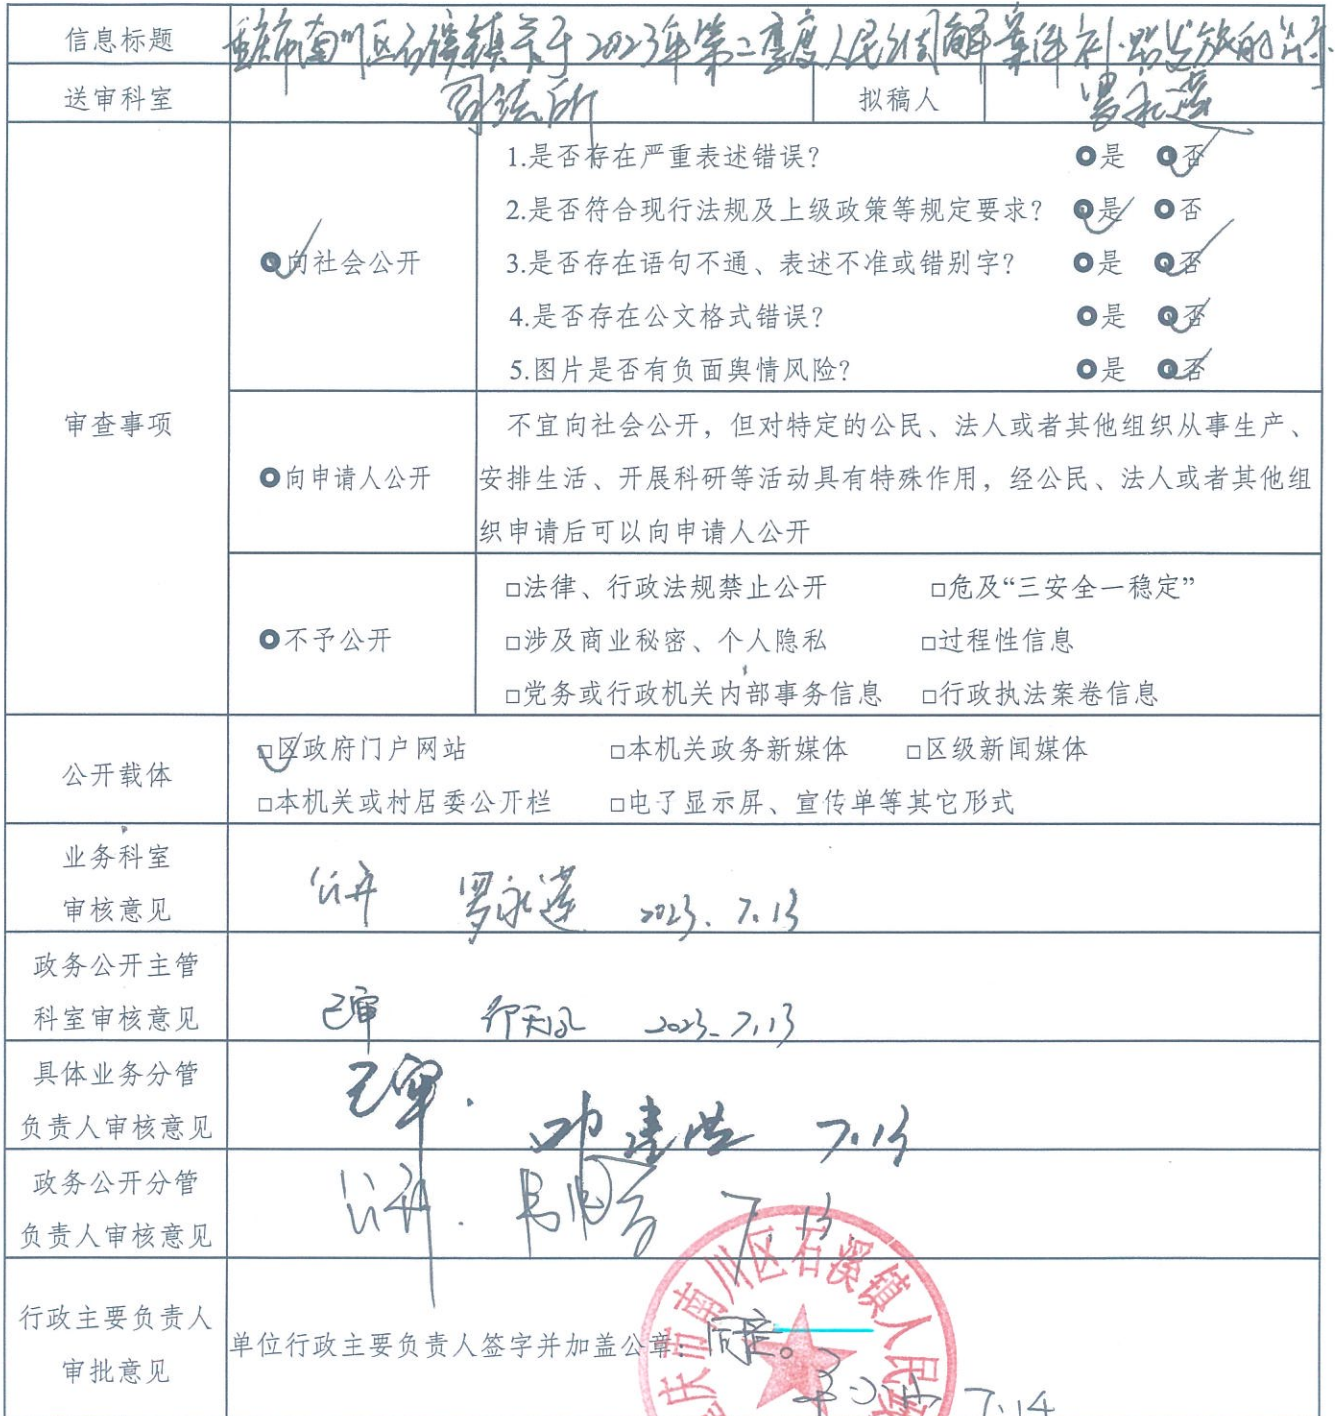 信息标题 重庆市南川区石溪镇关于2023年第二季度人民调解案件补贴发放的公示
送审科室 司法所 拟稿人 罗永莲
1.是否存在严重表述错误？ 是 否
2.是否符合现行法规及上级政策等规定要求？ 是 否
向社会公开 3.是否存在语句不通、表述不准或错别字？ 是 否
4.是否存在公文格式错误？ 是 否
5.图片是否有负面舆情风险？ 是 否
审查事项
不宜向社会公开，但对特定的公民、法人或者其他组织从事生产、
向申请人公开 安排生活、开展科研等活动具有特殊作用，经公民、法人或者其他组
织申请后可以向申请人公开
□法律、行政法规禁止公开 □危及“三安全一稳定”
不予公开 □涉及商业秘密、个人隐私 □过程性信息
□党务或行政机关内部事务信息 □行政执法案卷信息
公开载体 □区政府门户网站 □本机关政务新媒体 □区级新闻媒体
□本机关或村居委公开栏 □电子显示屏、宣传单等其它形式
业务科室
审核意见 公开 罗永莲 2023.7.13
政务公开主管
科室审核意见 已审 2023.7.13
具体业务分管
负责人审核意见 已审. 7.13
政务公开分管
负责人审核意见 公开. 7.13
行政主要负责人
审批意见 单位行政主要负责人签字并加盖公章：同意。 7.14
庆市南川区石溪镇人民政